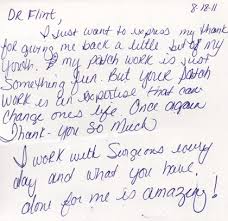 8-18-11
DR. Flint,
I just want to express my thank
for giving me back a little bit of my
youth. my patch work is just
Something fun. But your Patch
work is an expertise that can
change ones life. Once again
Thank-you So Much
I work with Surgeons every
day and what you have
done for me is amazing!